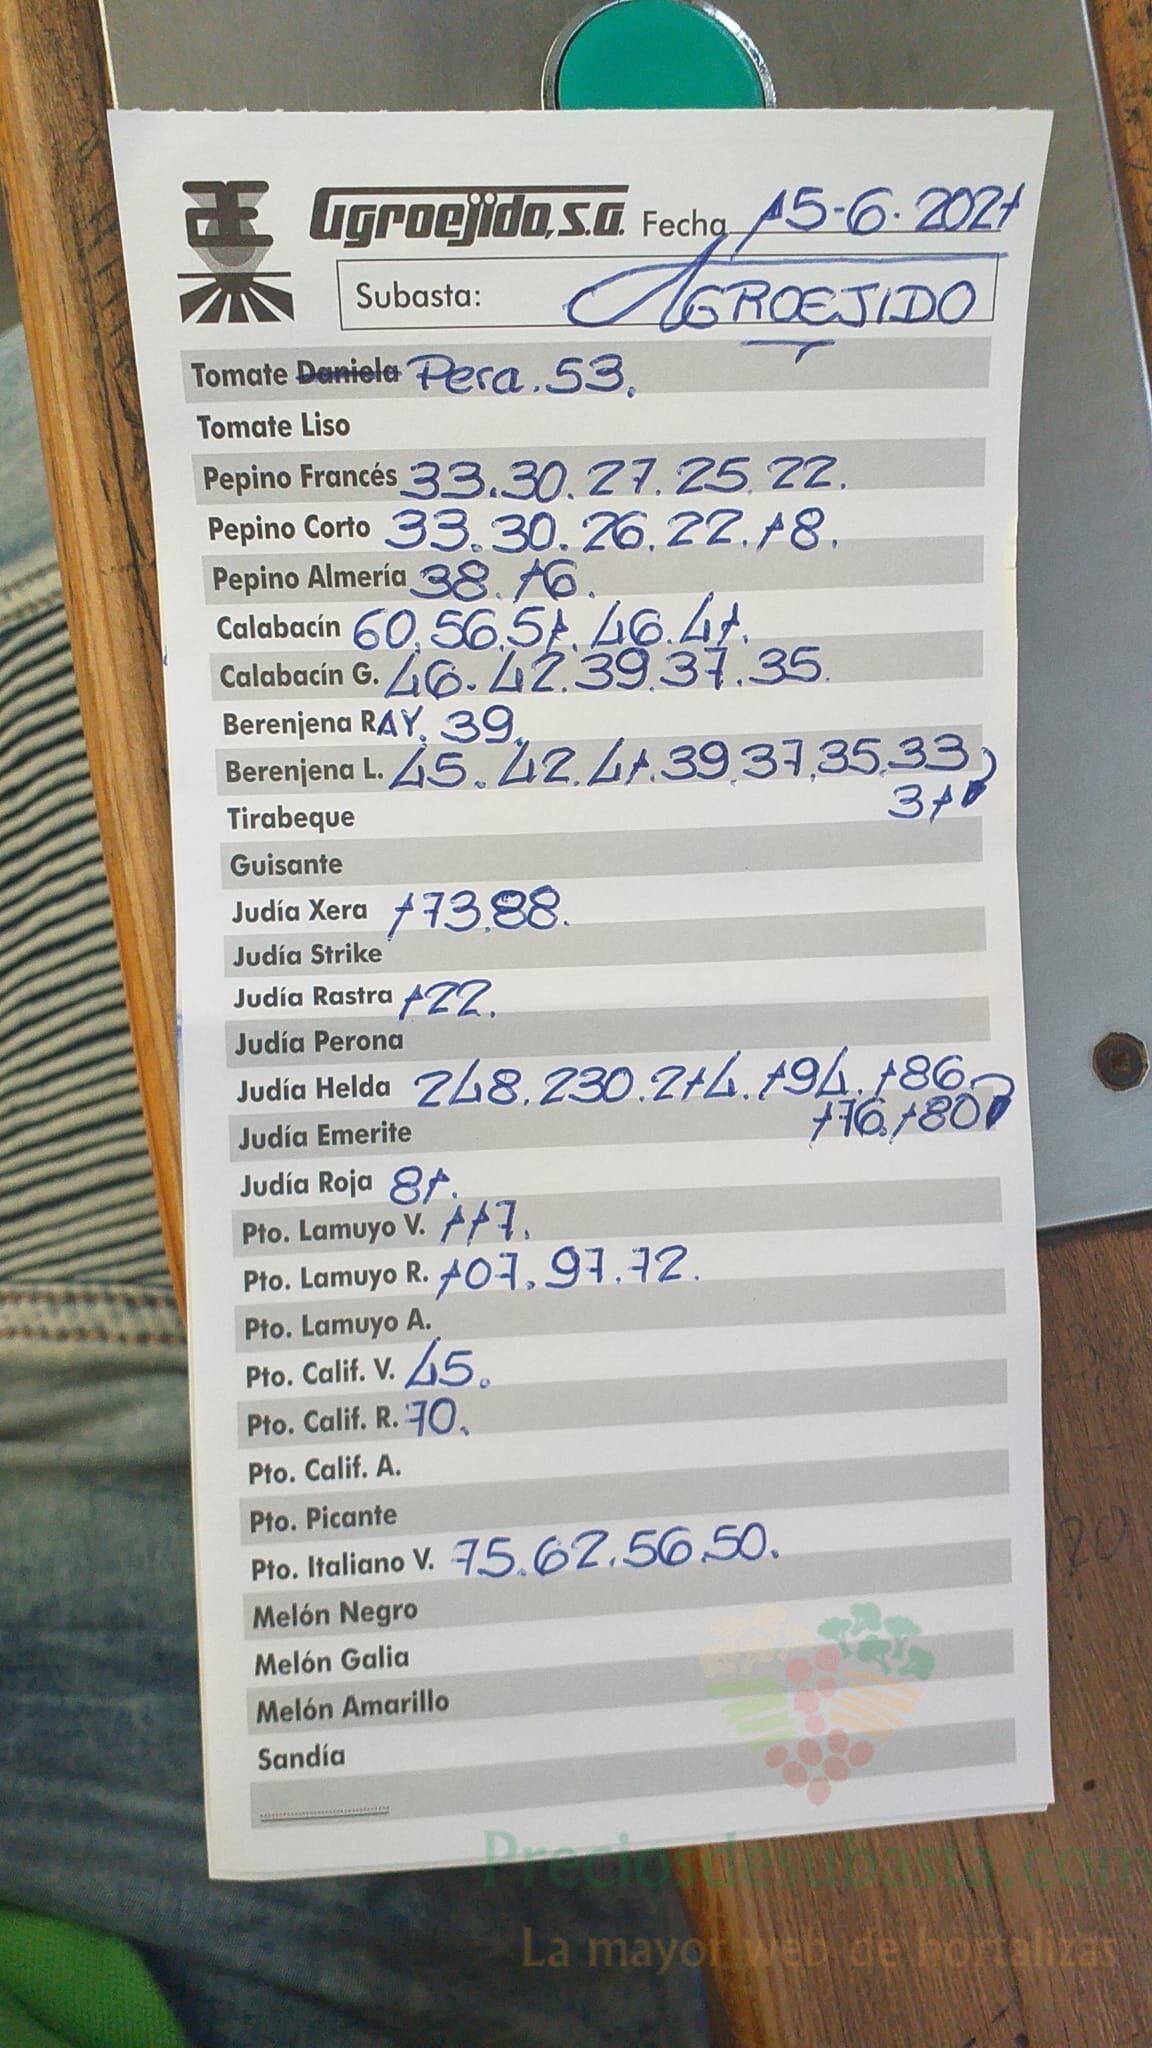 Agroejido, S.A. Fecha 15-6-2021
Subasta: AGROEJIDO
Tomate Daniela Pera. 53.
Tomate Liso
Pepino Francés 33.30.27.25.22.
Pepino Corto 33.30.26.22.18.
Pepino Almería 38.16.
Calabacín 60.56.51.46.41.
Calabacín G. 46.42.39.37.35.
Berenjena RAY. 39.
Berenjena L. 45.42.41.39.37.35.33
31
Tirabeque
Guisante
Judía Xera 173.88.
Judía Strike
Judía Rastra 122.
Judía Perona
Judía Helda 248.230.214.194.186
176.180
Judía Emerite
Judía Roja 81.
Pto. Lamuyo V. 117.
Pto. Lamuyo R. 107.97.72.
Pto. Lamuyo A.
Pto. Calif. V. 45.
Pto. Calif. R. 70.
Pto. Calif. A.
Pto. Picante
Pto. Italiano V. 75.62.56.50.
Melón Negro
Melón Galia
Melón Amarillo
Sandía
Preciosdesubasta.com
La mayor web de hortalizas